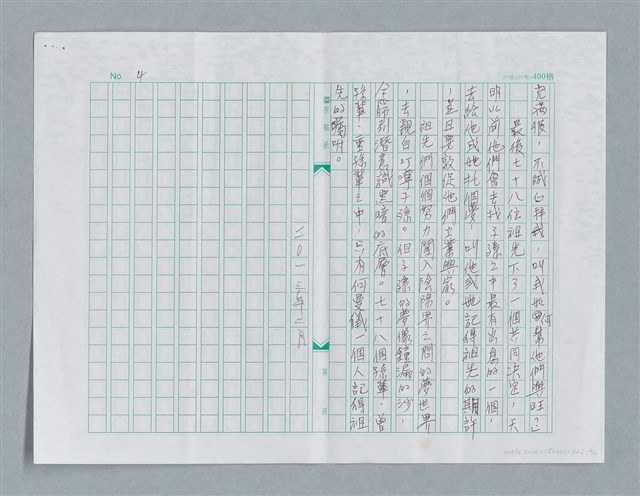 No. 4
400格
充滿恨,不誠心拜我,叫我如何幫他們興旺?」
最後七十八位祖先下了一個共同決定,天
明以前他們會去找子孫之中最有出息的一個,
去給他或她托個夢,叫他或她記得祖先的期許
,並且要敦促他們立業興家。
祖先們個個努力闖入陰陽界之間的夢世界
,去親自叮嚀子孫。但子孫的夢像鐘漏的沙,
全篩到潛意識黑暗的底層。七十八個孫輩、曾
孫輩、重孫輩之中,只有何曼儀一個人記得祖
先的囑咐。
二〇一三年二月